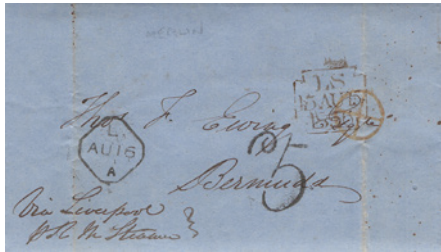 MEDWN
LS
15 AU 15
185
Thos F. Ewing Esqr
L
AU 16
A
5
Bermuda
Via Liverpool
p R. M. Steamer